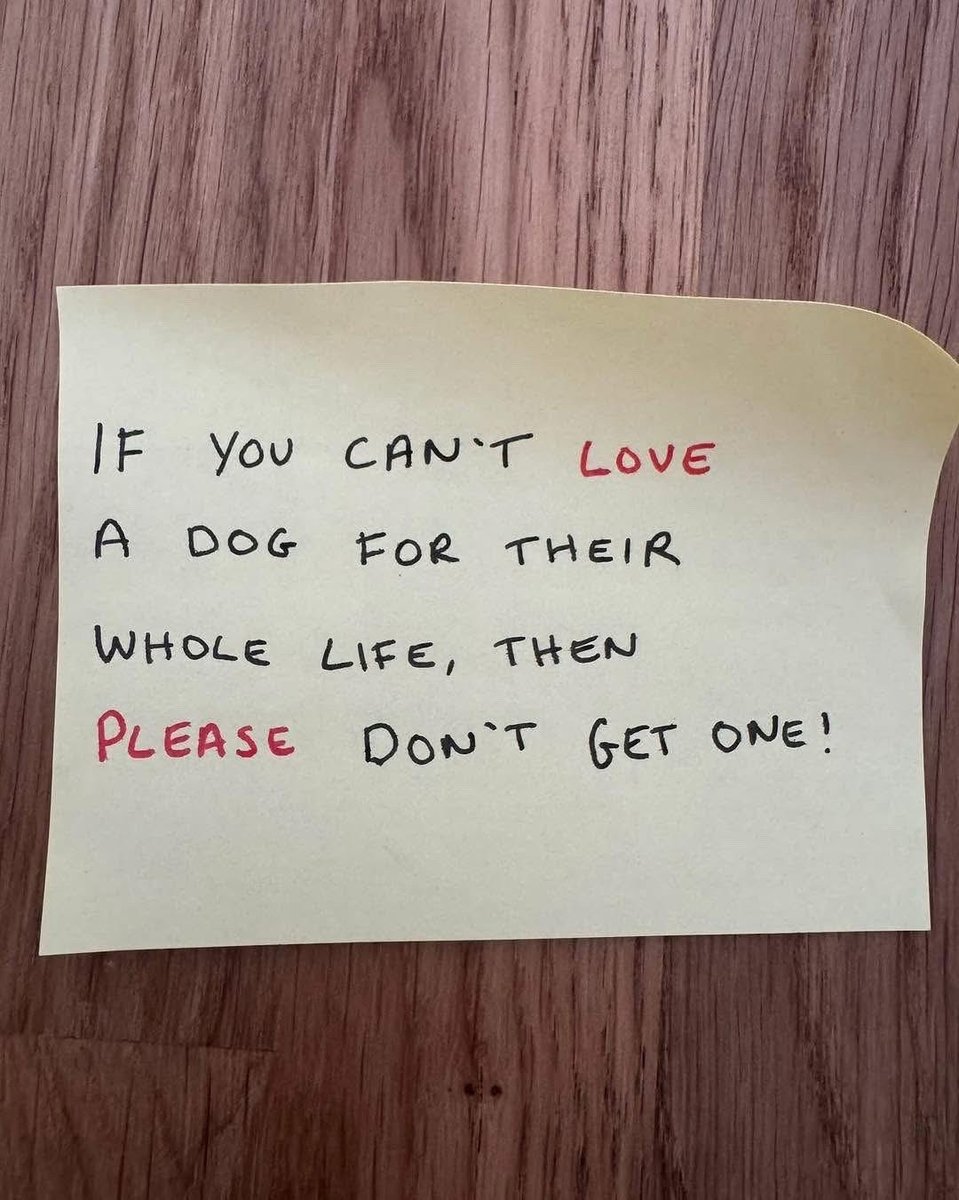 IF YOU CAN'T LOVE
A DOG FOR THEIR
WHOLE LIFE, THEN
PLEASE DON'T GET ONE!